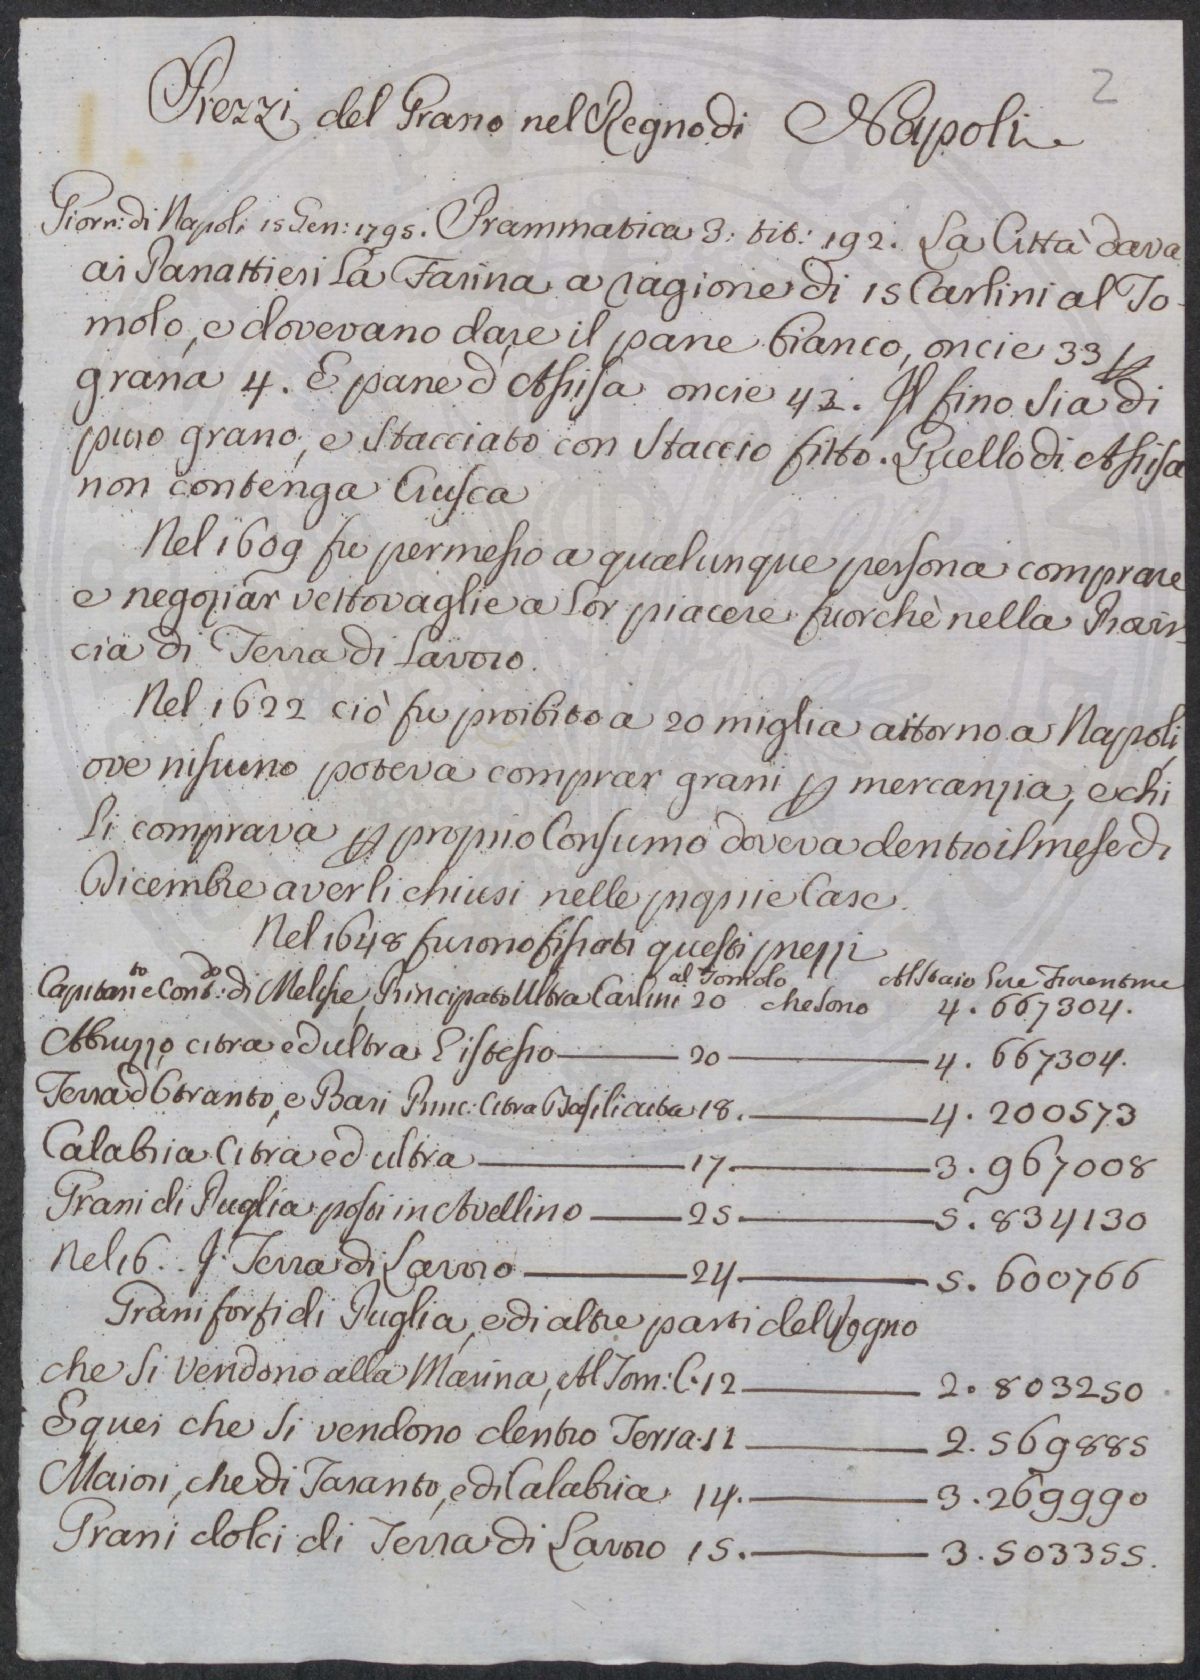 2
Prezzi del Grano nel Regno di Napoli
Giorn: di Napoli 15 Gen: 1795. Prammatica 3: tit: 192. La Città dava
ai Panattieri la Farina a ragione di 15 Carlini al To-
molo, e dovevano dare il pane bianco, oncie 33 p
grana 4. E pane d'Assisa oncie 42. Il fino sia di
puro grano, e stacciato con staccio fitto. Quello di Assisa
non contenga Crusca
Nel 1609 fu permesso a qualunque persona comprare
e negoziar vettovaglie a lor piacere fuorchè nella Provin
cia di Terra di Lavoro.
Nel 1622 ciò fu proibito a 20 miglia attorno a Napoli,
ove nisuno poteva comprar grani p mercanzia, e chi
li comprava p proprio Consumo doveva dentro il mese di
Dicembre averli chiusi nelle proprie Case.
Nel 1648 furono fissati questi prezzi
al Tomolo Al Staio Lire Fiorentine
Capitan.ta e Cont.do di Melise, Principato Ultra Carlini 20 che sono 4. 667304.
Abruzzo citra ed ultra l'istesso 20 4. 667304.
Terra d'Otranto, e Bari Princ: Citra Basilicata 18. 4. 200573
Calabria Citra ed ultra 17. 3. 967008
Grani di Puglia posti in Avellino 25 5. 834130
Nel 16.. Terra di Lavoro 24 5. 600766
Grani forti di Puglia, e di altre parti del Regno
che si vendono alla Marina, Al Tom: C. 12 2. 803250
E quei che si vendono dentro Terra. 11 2. 569885
Maiori, che di Taranto, e di Calabria 14. 3. 269990
Grani dolci di Terra di Lavoro 15. 3. 503355.